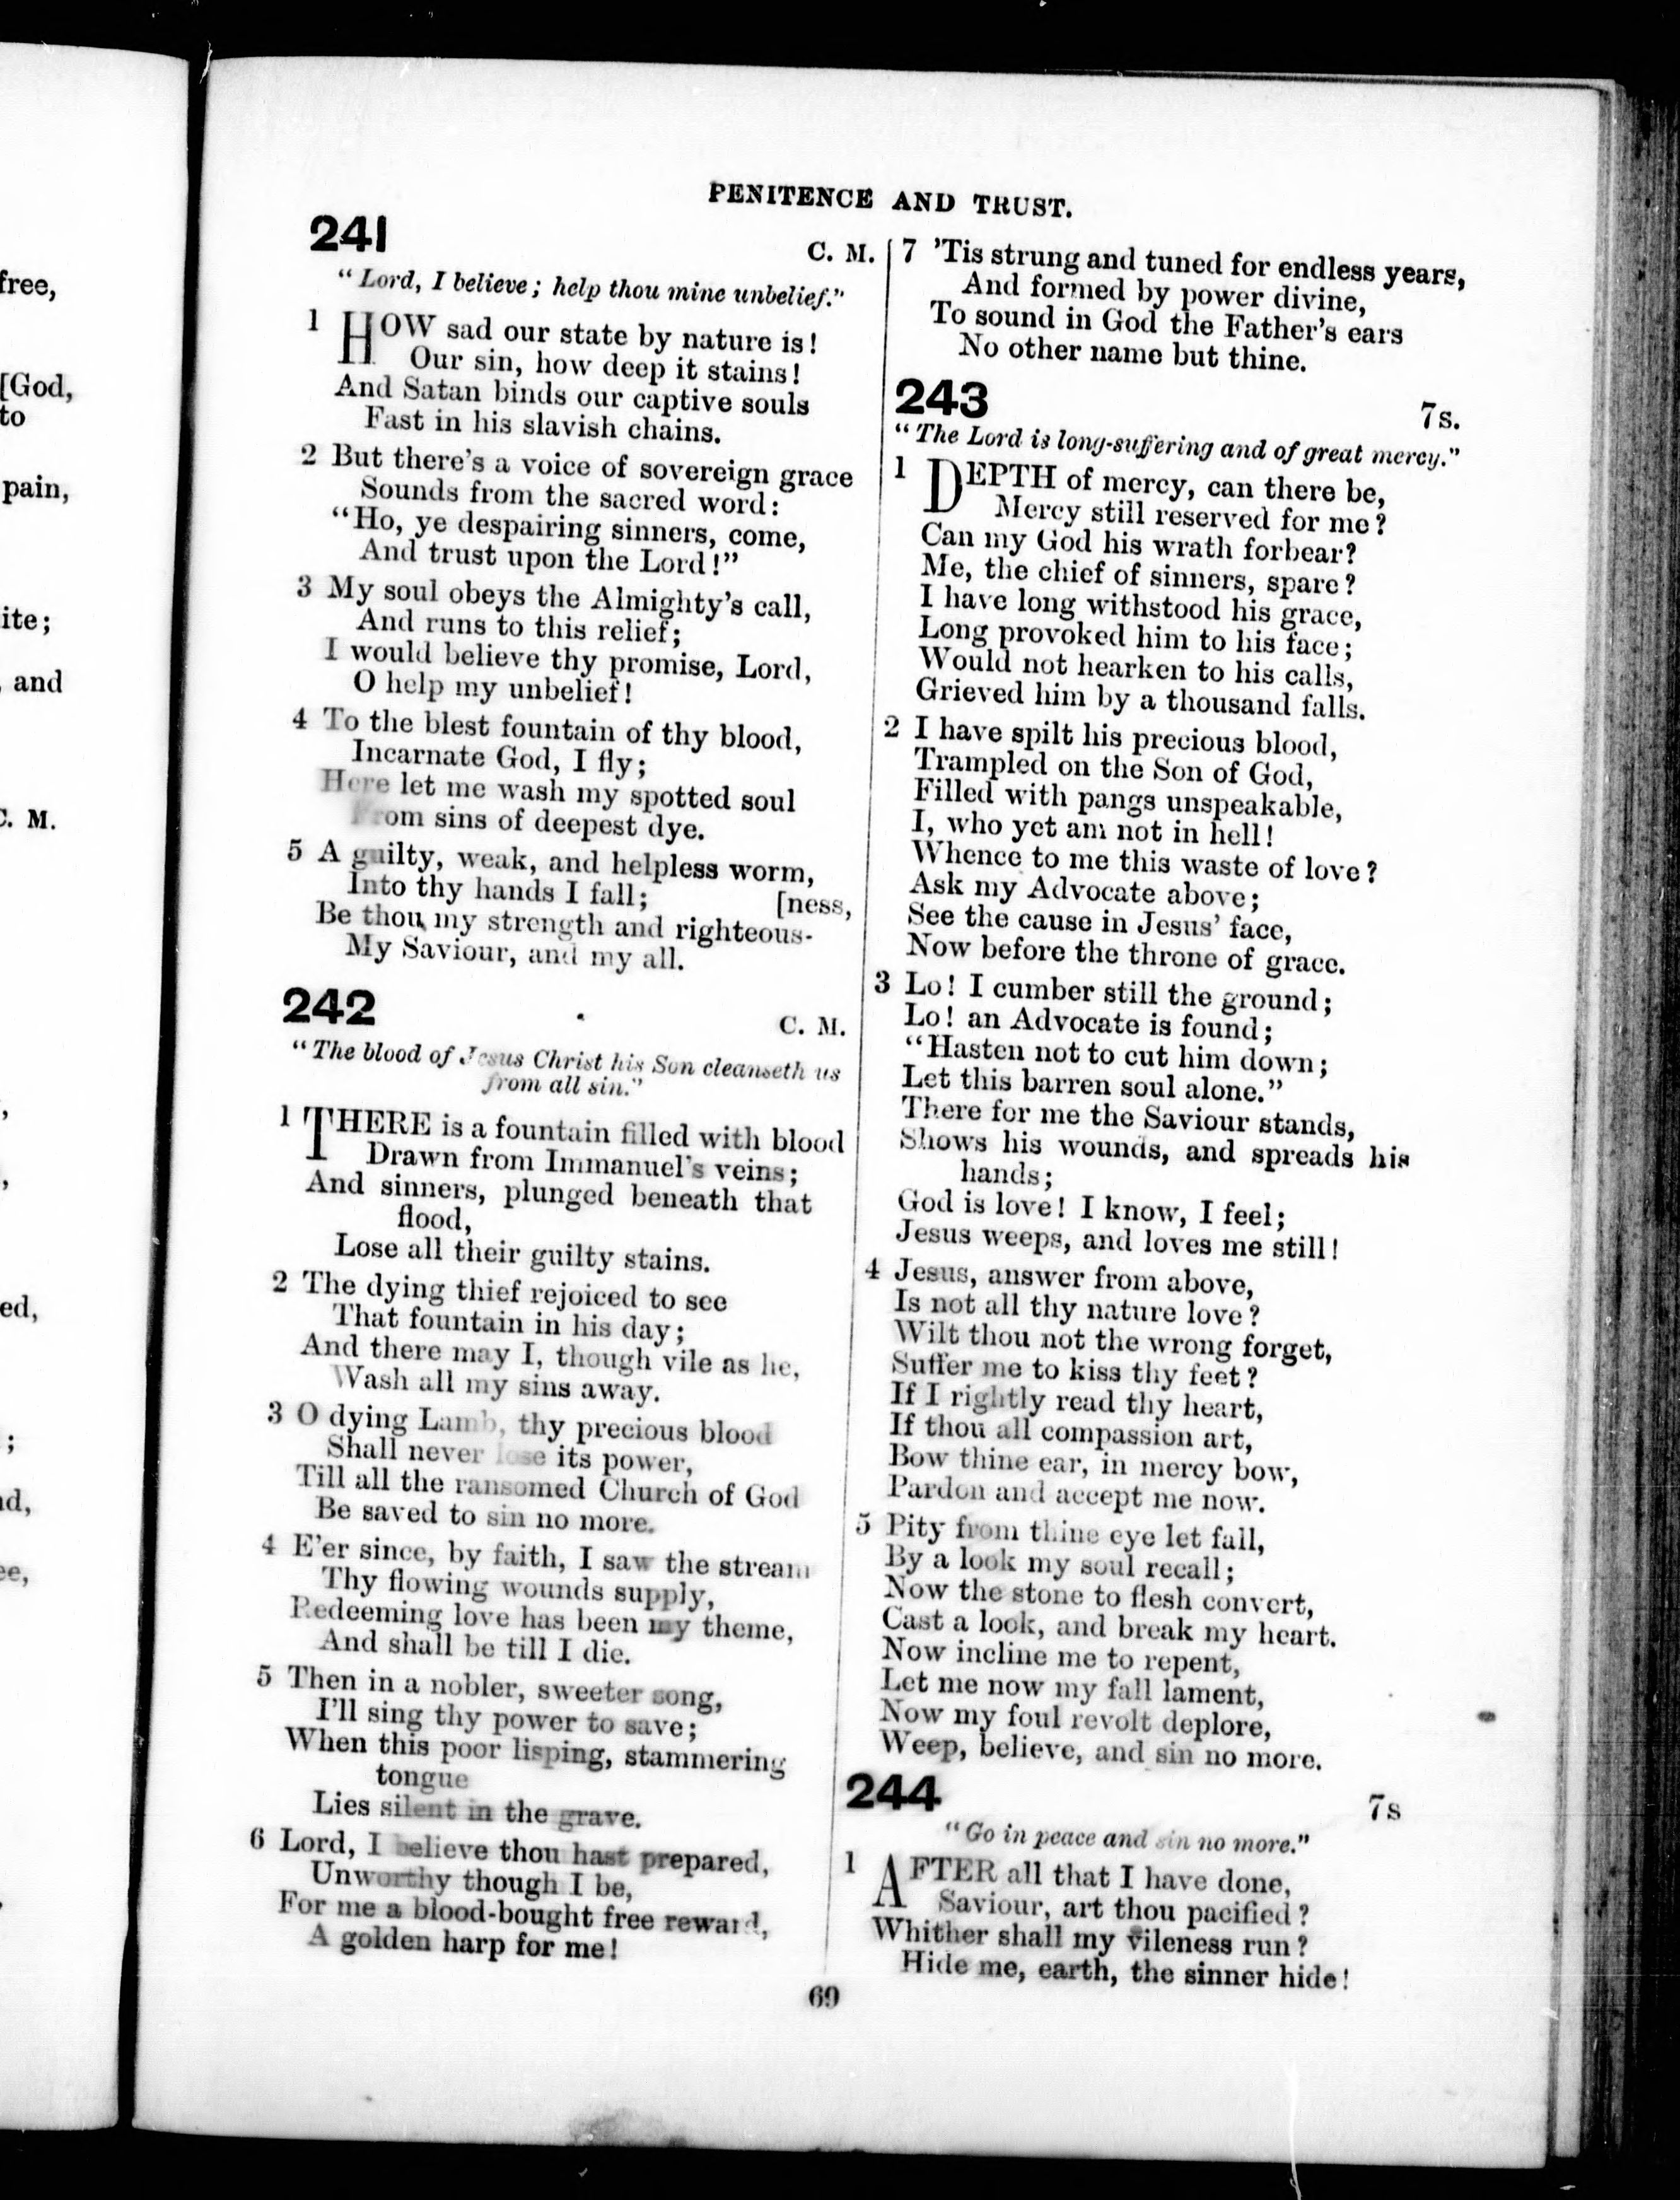 free,
[God,
to
pain,
ite;
, and
C. M.
ed,
;
d,
ee,
PENITENCE AND TRUST.
241
C. M.
"Lord, I believe; help thou mine unbelief."
1 HOW sad our state by nature is!
Our sin, how deep it stains!
And Satan binds our captive souls
Fast in his slavish chains.
2 But there's a voice of sovereign grace
Sounds from the sacred word:
"Ho, ye despairing sinners, come,
And trust upon the Lord!"
3 My soul obeys the Almighty's call,
And runs to this relief;
I would believe thy promise, Lord,
O help my unbelief!
4 To the blest fountain of thy blood,
Incarnate God, I fly;
Here let me wash my spotted soul
From sins of deepest dye.
5 A guilty, weak, and helpless worm,
Into thy hands I fall; [ness,
Be thou my strength and righteous-
My Saviour, and my all.
242
C. M.
"The blood of Jesus Christ his Son cleanseth us
from all sin."
1 THERE is a fountain filled with blood
Drawn from Immanuel's veins;
And sinners, plunged beneath that
flood,
Lose all their guilty stains.
2 The dying thief rejoiced to see
That fountain in his day;
And there may I, though vile as he,
Wash all my sins away.
3 O dying Lamb, thy precious blood
Shall never lose its power,
Till all the ransomed Church of God
Be saved to sin no more.
4 E'er since, by faith, I saw the stream
Thy flowing wounds supply,
Redeeming love has been my theme,
And shall be till I die.
5 Then in a nobler, sweeter song,
I'll sing thy power to save;
When this poor lisping, stammering
tongue
Lies silent in the grave.
6 Lord, I believe thou hast prepared,
Unworthy though I be,
For me a blood-bought free reward,
A golden harp for me!
7 'Tis strung and tuned for endless years,
And formed by power divine,
To sound in God the Father's ears
No other name but thine.
243
7s.
"The Lord is long-suffering and of great mercy."
1 DEPTH of mercy, can there be,
Mercy still reserved for me?
Can my God his wrath forbear?
Me, the chief of sinners, spare?
I have long withstood his grace,
Long provoked him to his face;
Would not hearken to his calls,
Grieved him by a thousand falls.
2 I have spilt his precious blood,
Trampled on the Son of God,
Filled with pangs unspeakable,
I, who yet am not in hell!
Whence to me this waste of love?
Ask my Advocate above;
See the cause in Jesus' face,
Now before the throne of grace.
3 Lo! I cumber still the ground;
Lo! an Advocate is found;
"Hasten not to cut him down;
Let this barren soul alone."
There for me the Saviour stands,
Shows his wounds, and spreads his
hands;
God is love! I know, I feel;
Jesus weeps, and loves me still!
4 Jesus, answer from above,
Is not all thy nature love?
Wilt thou not the wrong forget,
Suffer me to kiss thy feet?
If I rightly read thy heart,
If thou all compassion art,
Bow thine ear, in mercy bow,
Pardon and accept me now.
5 Pity from thine eye let fall,
By a look my soul recall;
Now the stone to flesh convert,
Cast a look, and break my heart.
Now incline me to repent,
Let me now my fall lament,
Now my foul revolt deplore,
Weep, believe, and sin no more.
244
7s
"Go in peace and sin no more."
1 AFTER all that I have done,
Saviour, art thou pacified?
Whither shall my vileness run?
Hide me, earth, the sinner hide!
69